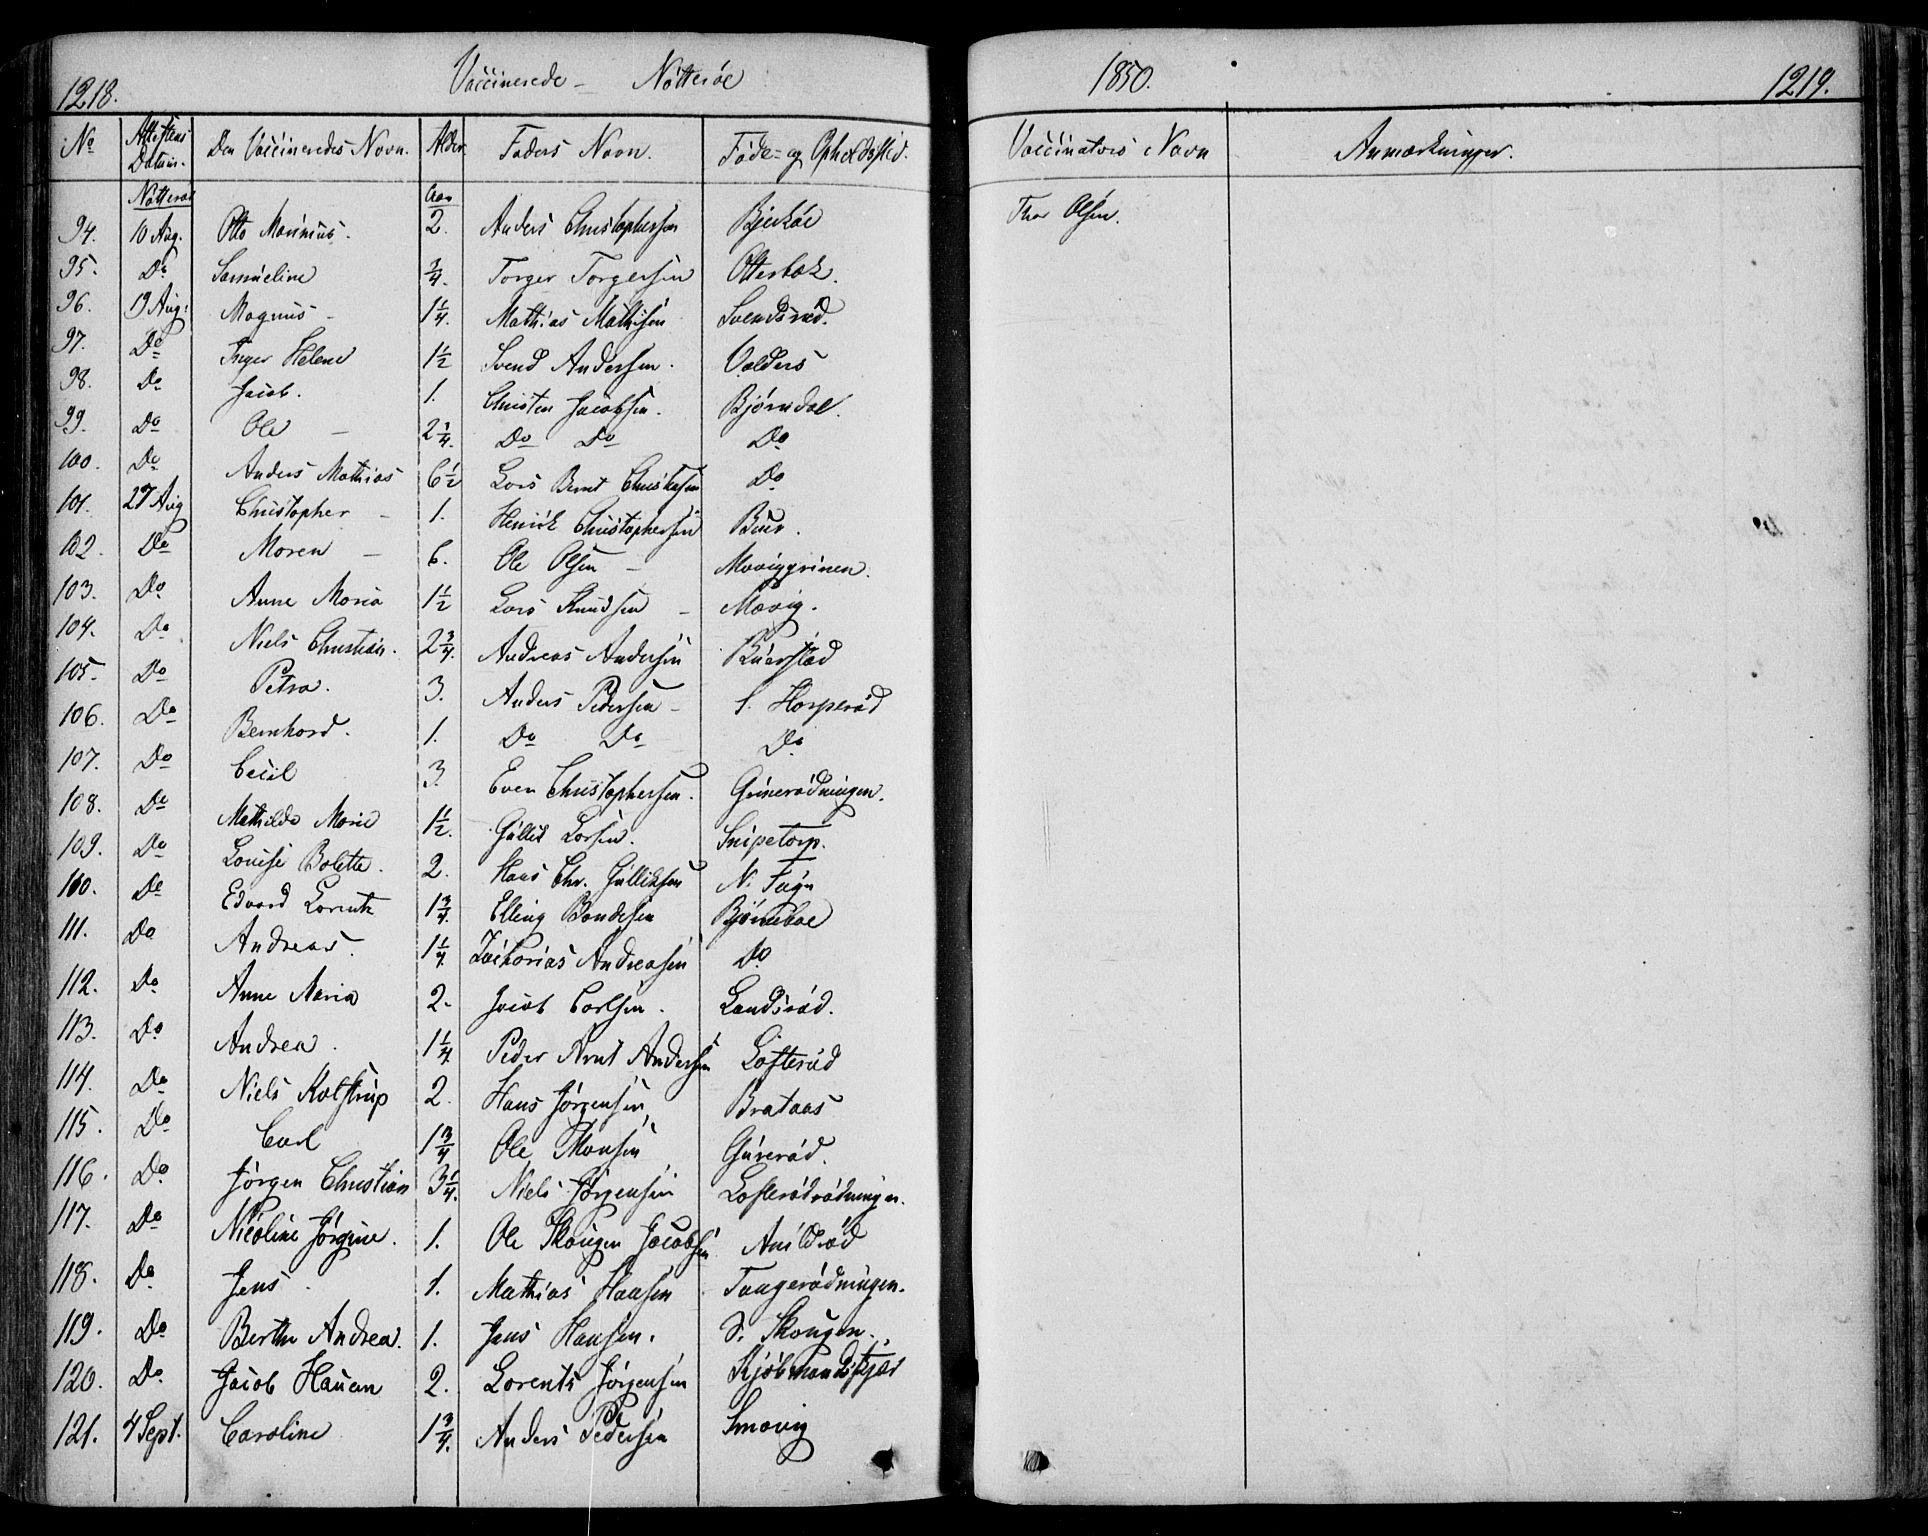 1218. Vaccinerede – Nötteröe 1850. 1219.
No Attestens Datum. Den Vaccineredes Navn. Alder. Faders Navn. Föde- og Opholdssted. Vaccinators Navn Anmærkninger.
Nötteröe Aar
94. 10 Aug. Otto Marinius. 2. Anders Christophersen Bjerköe Thor Olsen.
95. Do Samueline 3/4. Torger Torgersen Otterbæk.
96. 19 Aug. Magnus – 1 1/4. Mathias Mathisen Svendsröd.
97. Do Inger Helene 1 1/2 Svend Andersen. Valders
98. Do Jacob. 1. Christen Jacobsen. Bjørndal.
99. Do Ole – 2 1/4. Do Do Do
100. Do Anders Mathias 6 1/2 Lars Bernt Christensen Do
101. 27 Aug Christopher – 1. Henrik Christophersen Buer.
102. Do Maren – 6. Ole Olsen – Moviggrinen.
103. Do Anne Maria 1 1/2 Lars Knudsen – Movig.
104. Do Niels Christian. 2 3/4. Andreas Andersen Buerstad
105. Do Petra. 3. Anders Pedersen – S. Horperöd
106. Do Bernhard. 1. Do Do Do
107. Do Cecil 3. Even Christophersen. Grimerödningen.
108. Do Mathilde Marie 1 1/2. Gullik Larsen. Snipetorp.
109. Do Louise Bolette. 2. Hans Chr. Gulliksen N. Fogn
110. Do Edvard Lorentz 1 3/4. Elling Bondesen Bjørneboe
111. Do Andreas. 1 1/4 Zacharias Andreasen Do
112. Do Anne Maria 2. Jacob Carlsen. Landsröd.
113. Do Andrea. 1 1/4 Peder Arnt Andersen Lofteröd
114. Do Niels Kolstrup 2. Hans Jørgensen, Brataas
115. Do Carl 1 3/4 Ole Monsen Gureröd.
116. Do Jørgen Christian 3 1/4. Niels Jørgensen Lofterödrödningen.
117. Do Nicoline Jørgine. 1. Ole Skougen Jacobsen Arildröd
118. Do Jens. 1. Mathias Hansen Tangerödningen.
119. Do Berthe Andrea. 1. Jens Hansen. S. Skougen.
120. Do Jacob Hauan 2. Lorents Jørgensen Kjöbmandskjær
121. 4 Sept. Caroline 1 3/4. Anders Pedersen Smovig